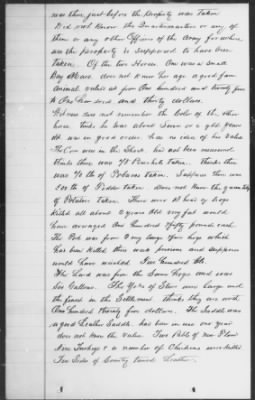 was there just before the property was taken
Did not know the Quartermaster or any of
them or any other Officers of the Army for whom
all the property is supposed to have been
taken. Of the two Horses One was a small
Bay Mare does not know her age a good farm
animal valued at from One hundred and twenty five
to One hundred and thirty dollars.
Witness does not remember the Color of the other
horse thinks he was about seven or eight years
old was in good order has no idea of his value
The Corn was in the Shuck had not been measured
thinks there was 75 Bushels taken. thinks there
was lb of Potatoes taken. Suppose there was
lb of Fodder taken does not know the quantity
of Potatoes taken. There were 13 head of hogs
killed all about 2 years old very fat would
have averaged One hundred & fifty pounds each
The Pork was from 2 very large fine hogs which
had been killed there was previous and suppose
would have weighed Five hundred lbs
The Lard was from the same hogs and was
Six Gallons. The Yoke of Steers were large and
the finest in the Settlement thinks they are worth
One hundred twenty five dollars. The Saddle was
a good Leather Saddle had been in use one year
does not know the value. Two Sets of new Plow
Gear Turkeys & a number of Chickens were killed
Two Sides of Country tanned Leather.